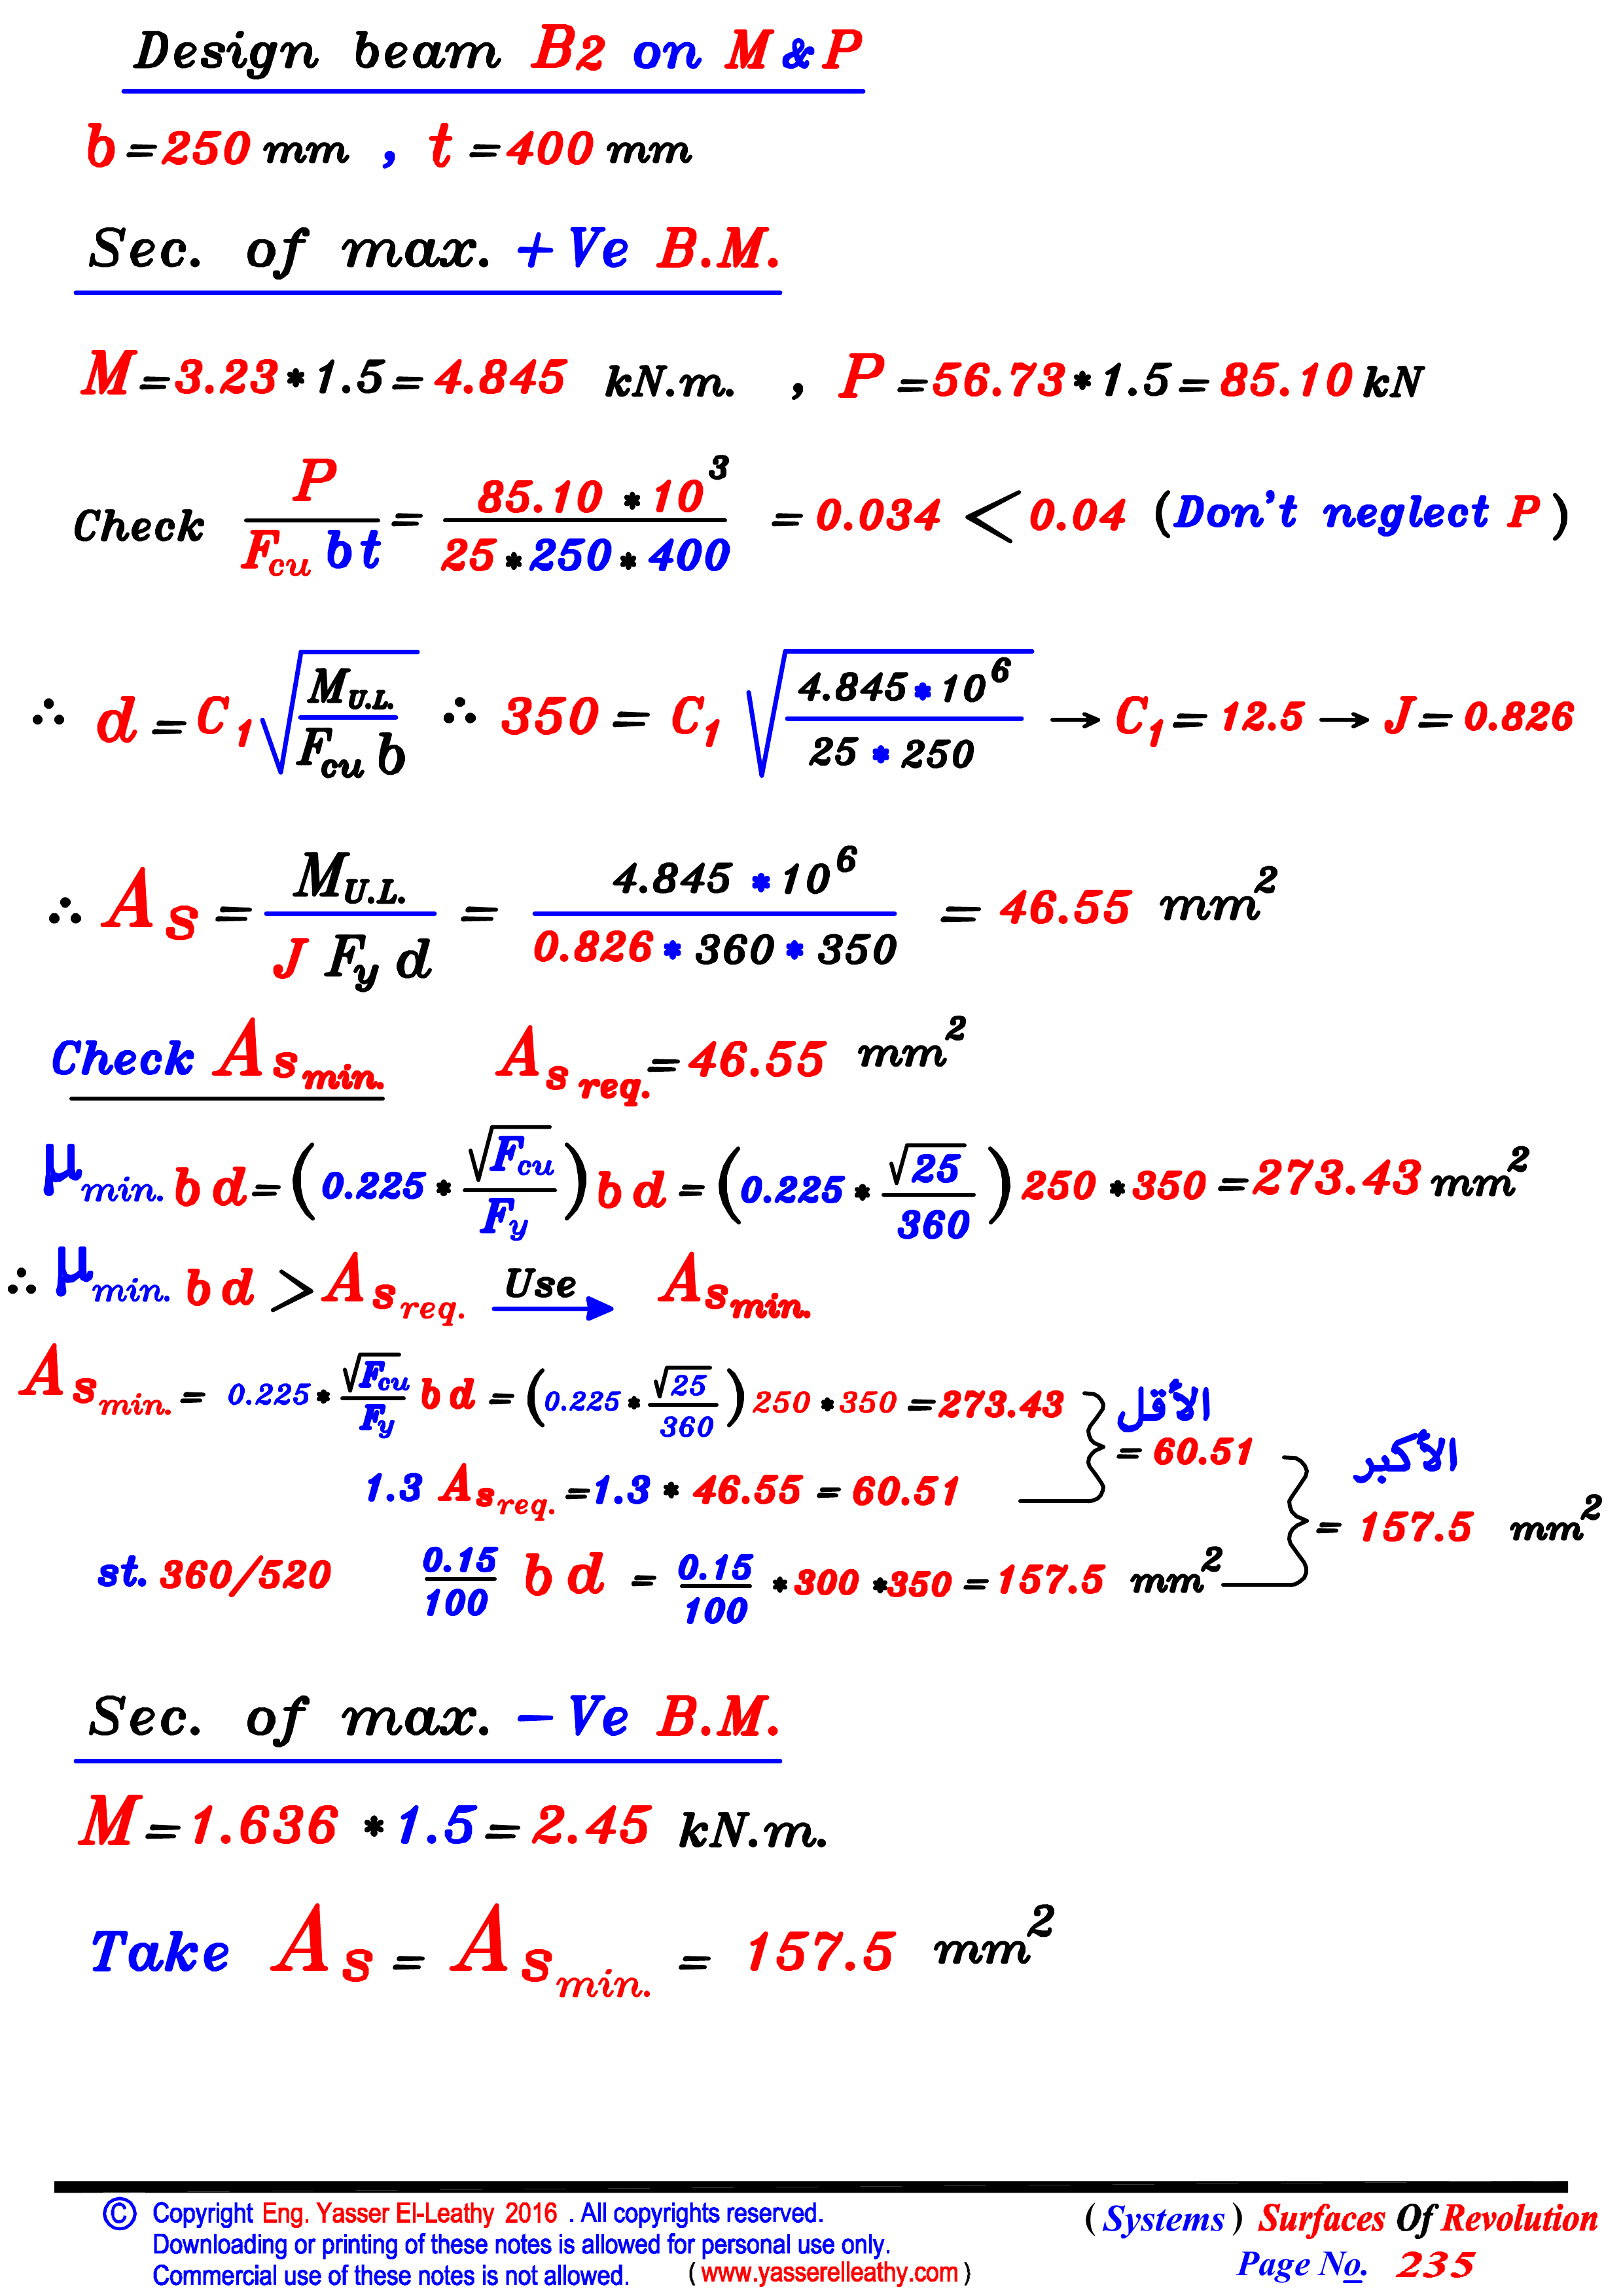 Design beam B2 on M & P
b = 250 mm , t = 400 mm
Sec. of max. +Ve B.M.
M = 3.23 * 1.5 = 4.845 kN.m. , P = 56.73 * 1.5 = 85.10 kN
Check P / (Fcu b t) = 85.10 * 10^3 / (25 * 250 * 400) = 0.034 < 0.04 (Don't neglect P)
∴ d = C1 √(M U.L. / (Fcu b)) ∴ 350 = C1 √(4.845 * 10^6 / (25 * 250)) → C1 = 12.5 → J = 0.826
∴ As = M U.L. / (J Fy d) = 4.845 * 10^6 / (0.826 * 360 * 350) = 46.55 mm^2
Check As min. As req. = 46.55 mm^2
μ min. b d = (0.225 * √Fcu / Fy) b d = (0.225 * √25 / 360) 250 * 350 = 273.43 mm^2
∴ μ min. b d > As req. Use → As min.
As min. = 0.225 * √Fcu / Fy b d = (0.225 * √25 / 360) 250 * 350 = 273.43 } الأقل
1.3 As req. = 1.3 * 46.55 = 60.51 } = 60.51 } الأكبر
= 157.5 mm^2
st. 360/520 0.15/100 b d = 0.15/100 * 300 * 350 = 157.5 mm^2
Sec. of max. -Ve B.M.
M = 1.636 * 1.5 = 2.45 kN.m.
Take As = As min. = 157.5 mm^2
© Copyright Eng. Yasser El-Leathy 2016 . All copyrights reserved.
Downloading or printing of these notes is allowed for personal use only.
Commercial use of these notes is not allowed. ( www.yasserelleathy.com )
( Systems ) Surfaces Of Revolution
Page No. 235